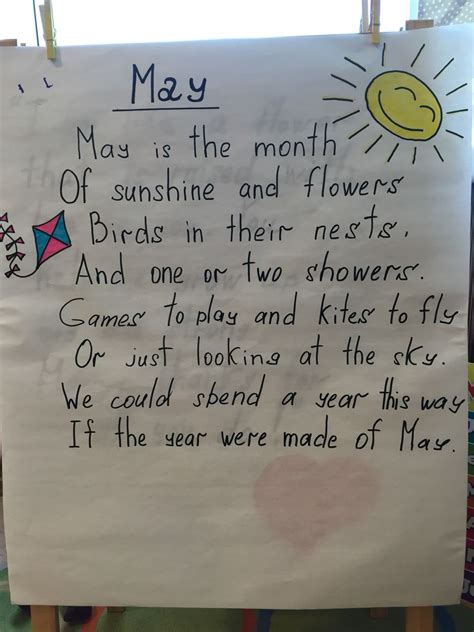 May
May is the month
Of sunshine and flowers
Birds in their nests,
And one or two showers.
Games to play and kites to fly
Or just looking at the sky.
We could spend a year this way
If the year were made of May.